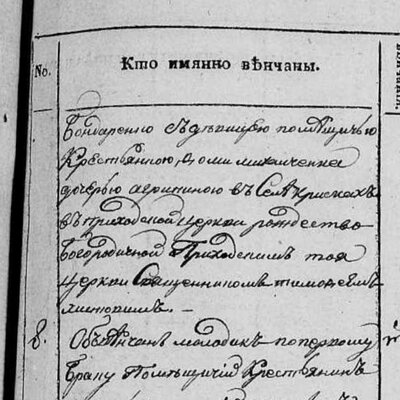 No.
Кто имянно вѣнчаны.
Бондаренко съдѣвицею помѣщичью
Крестьянкою, Фоми михличенка
дочерью агрипиною въ Селѣ Крискахъ
въ приходской церкви рождество
богородичной Приходскимъ тоя
церкви Священникомъ тимофеемъ
8. Обвѣнчанъ молодикъ поперкому
браку Помѣщичій Крестьянинъ